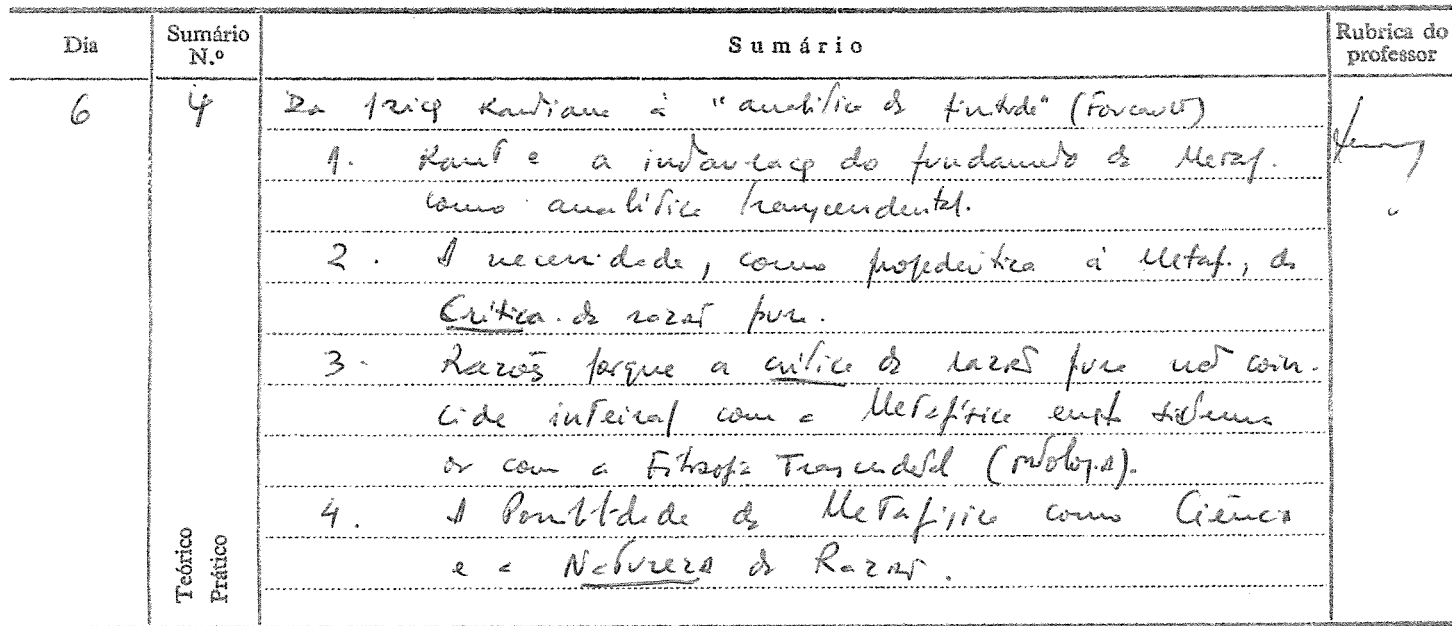 Dia
Sumário N.º
Sumário
Rubrica do professor
6
4
Da Kantiana à "analítica da finitude" (Foucault)
1. Kant e a do fundamento da Metaf.
como analítica transcendental.
2. A necessidade, como propedêutica à Metaf., da
Crítica da razão pura.
3. Razões porque a crítica da razão pura não coin-
cide inteira/ com a Metafísica enqt sistema
ou com a Filosofia Transcendental (ontologia).
4. A Possibilidade da Metafísica como Ciência
e a Natureza da Razão.
Teórico
Prático